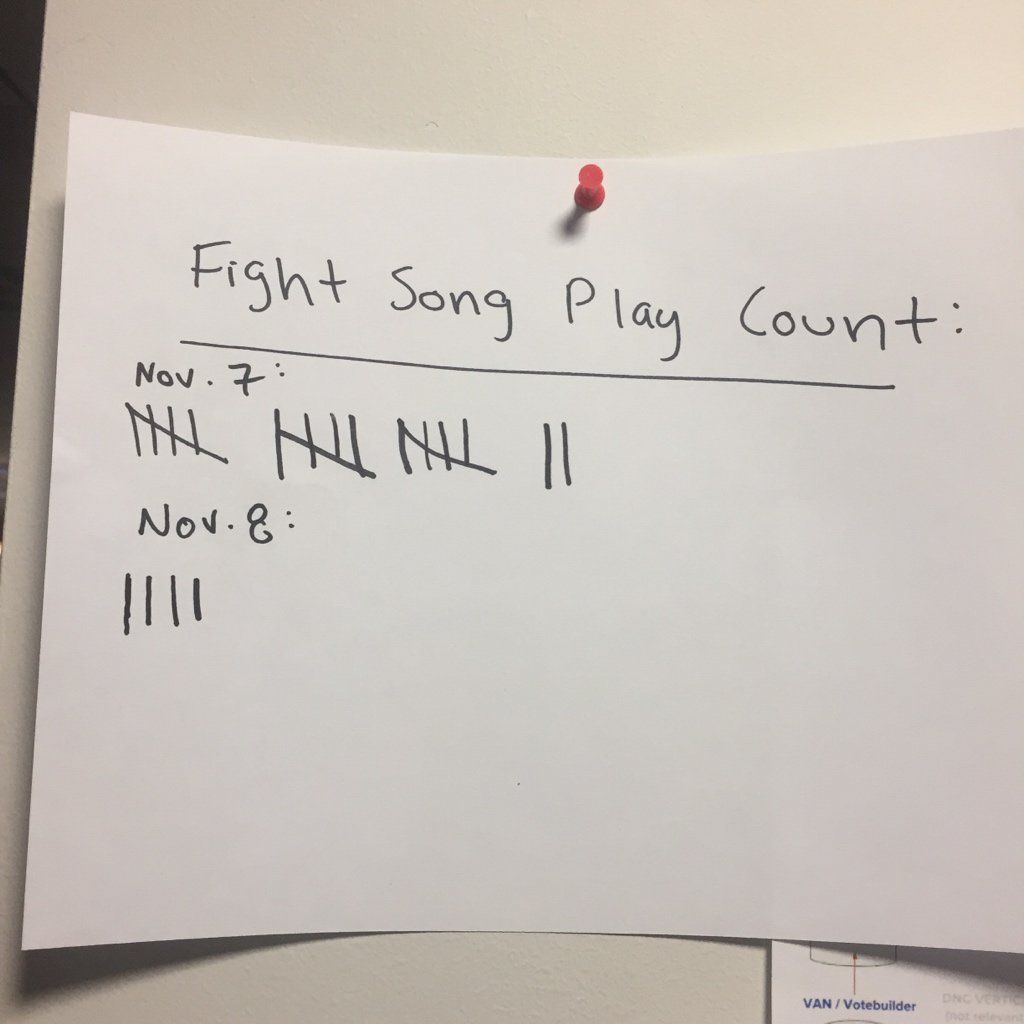 Fight Song Play Count:
Nov. 7:
Nov. 8:
VAN / Votebuilder
DNC VERTIC
(not relevant